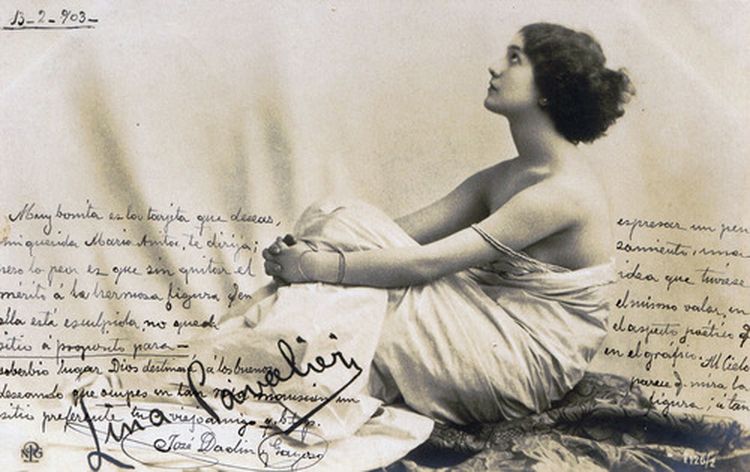 13-2-903-
Muy bonita es la tarjeta que deseas,
mi querida Maria Antoª te dirija;
pero lo peor es que sin quitar el
mérito á la hermosa figura q en
ella está esculpida, no queda
sitio á proposito para
espresar un pen
samiento, una
idea que tuviese
el mismo valor, en
el aspecto poético q
en el gráfico: Al Cielo
parece q mira la
figura, á tan
soberbio lugar Dios destina á los buenos
deseando que ocupes en tan
sitio preferente tu viejo amigo q.b.t.p.
José
Lina Cavalieri
1126/2